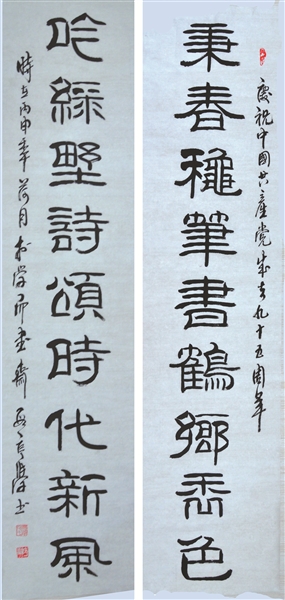 慶祝中國共產黨成立九十五周年
秉春穐筆書鶴鄉秀色
吟綠墅詩頌時代新風
時在丙申年荷月於學而書齋